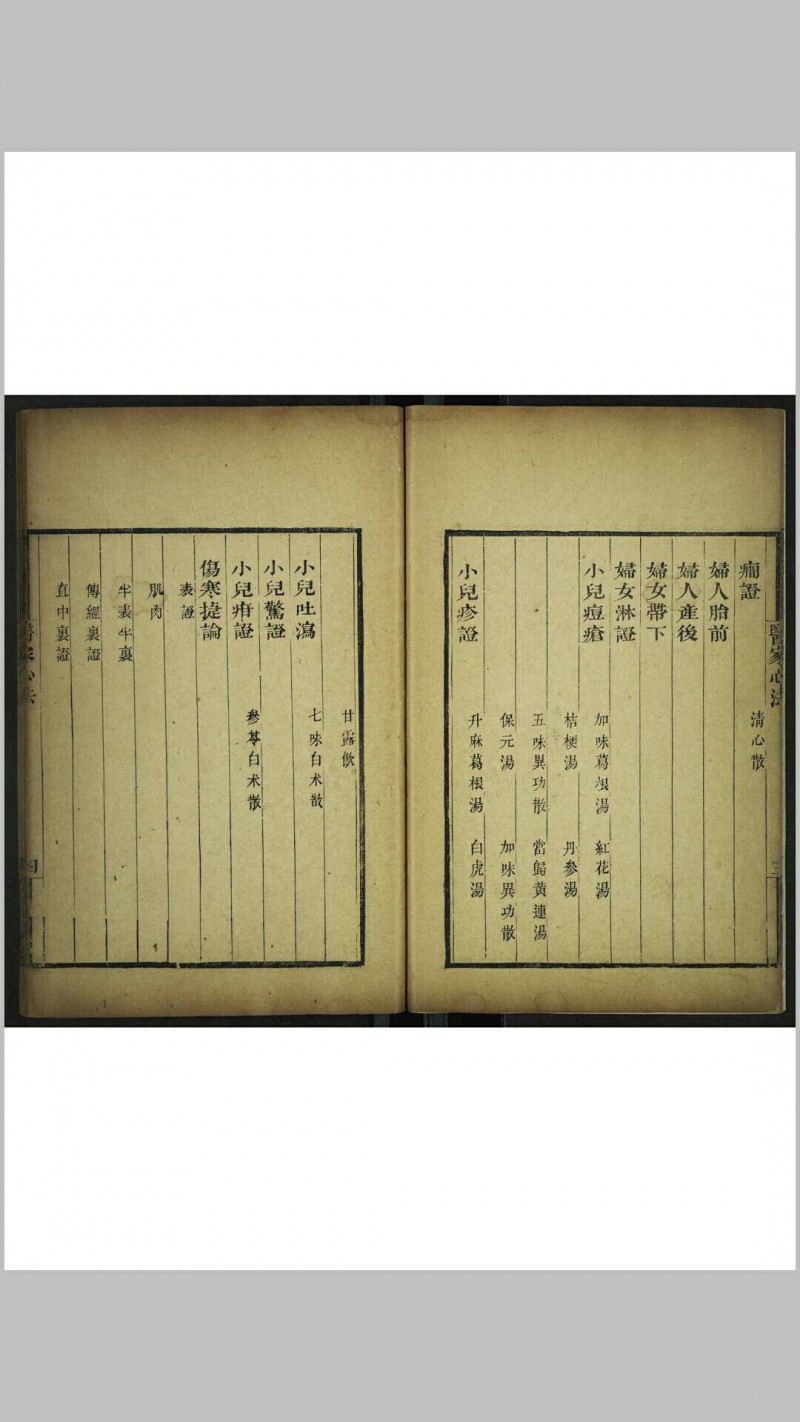 醫家心法
三
癎證
清心散
婦人胎前
婦人產後
婦女帶下
婦女淋證
小兒痘瘡
加味葛根湯 紅花湯
桔梗湯 丹參湯
五味異功散 當歸黃連湯
保元湯 加味異功散
小兒疹證
升麻葛根湯 白虎湯
甘露飲
小兒吐瀉
七味白术散
小兒驚證
小兒疳證
參苓白术散
傷寒捷論
表證
肌肉
半表半裏
傳經裏證
直中裏證
醫家心法
四